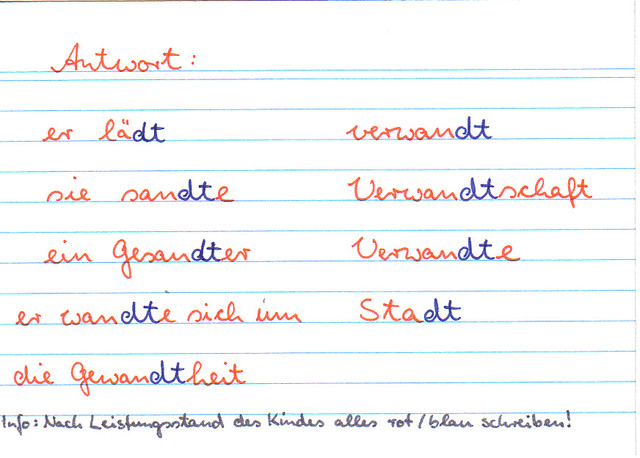 Antwort:
er lädt verwandt
sie sandte Verwandtschaft
ein Gesandter Verwandte
er wandte sich um Stadt
die Gewandtheit
Info: Nach Leistungsstand des Kindes alles rot/blau schreiben!